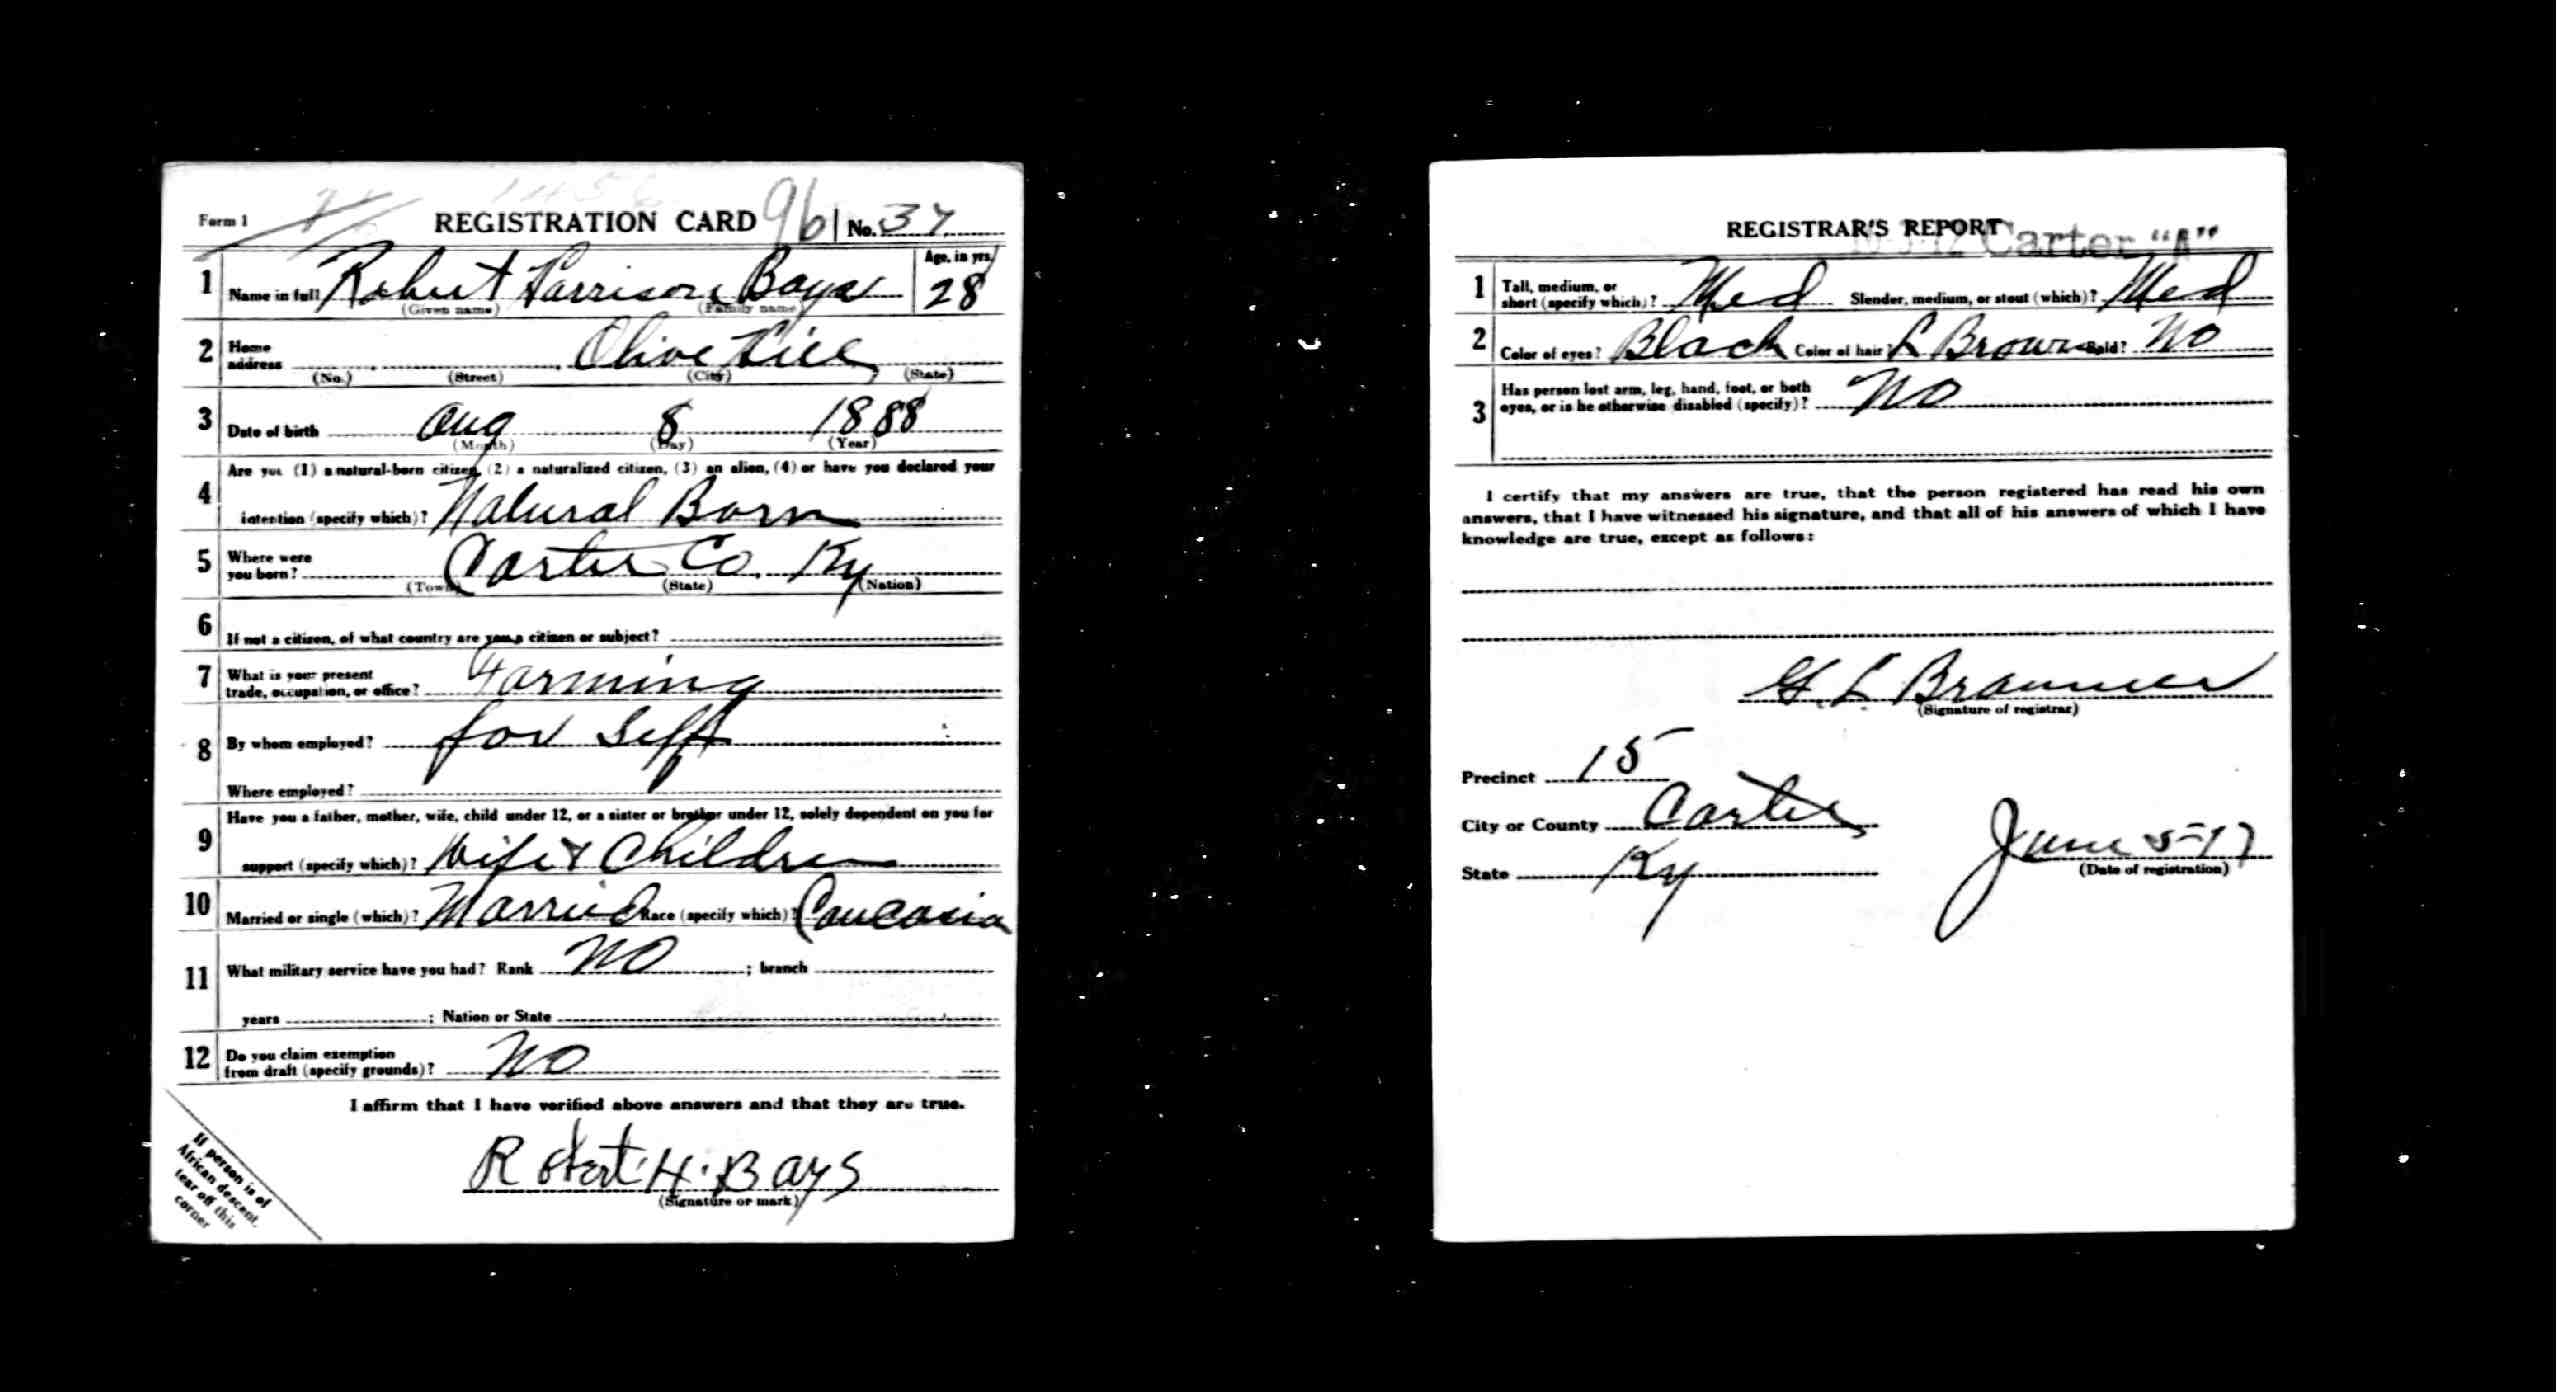 Form 1 REGISTRATION CARD 96 No. 37
1 Name in full Robert Harrison Bays Age, in yrs. 28
(Given name) (Family name)
2 Home address Olive Hill
(No.) (Street) (City) (State)
3 Date of birth Aug 8 1888
(Month) (Day) (Year)
4 Are you (1) a natural-born citizen, (2) a naturalized citizen, (3) an alien, (4) or have you declared your
intention (specify which)? Natural Born
5 Where were you born? Carter Co. Ky
(Town) (State) (Nation)
6 If not a citizen, of what country are you a citizen or subject?
7 What is your present
trade, occupation, or office? Farming
8 By whom employed? for Self
Where employed?
9 Have you a father, mother, wife, child under 12, or a sister or brother under 12, solely dependent on you for
support (specify which)? Wife & Children
10 Married or single (which)? Married Race (specify which)? Caucasia
11 What military service have you had? Rank NO ; branch
years ; Nation or State
12 Do you claim exemption
from draft (specify grounds)? NO
I affirm that I have verified above answers and that they are true.
Robert H. Bays
(Signature or mark)
If person is of
African descent,
tear off this
corner
REGISTRAR'S REPORT
Carter "A"
1 Tall, medium, or
short (specify which)? Med Slender, medium, or stout (which)? Med
2 Color of eyes? Black Color of hair? L Brown Bald? No
3 Has person lost arm, leg, hand, foot, or both
eyes, or is he otherwise disabled (specify)? No
I certify that my answers are true, that the person registered has read his own
answers, that I have witnessed his signature, and that all of his answers of which I have
knowledge are true, except as follows:
G. L Brammer
(Signature of registrar)
Precinct 15
City or County Carter
State Ky June 5-17
(Date of registration)